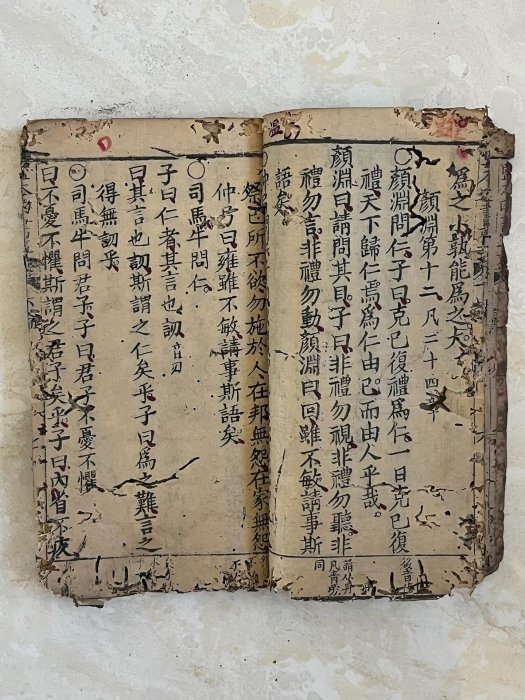 為之小孰能為之大
顏淵第十二 凡二十四章
○顏淵問仁子曰克己復禮為仁一日克己復
禮天下歸仁焉為仁由己而由人乎哉
顏淵曰請問其目子曰非禮勿視非禮勿聽非
禮勿言非禮勿動顏淵曰回雖不敏請事斯
語矣
祭己所不欲勿施於人在邦無怨在家無怨
仲弓曰雍雖不敏請事斯語矣
○司馬牛問仁
子曰仁者其言也訒 音刃
曰其言也訒斯謂之仁矣乎子曰為之難言之
得無訒乎
○司馬牛問君子子曰君子不憂不懼
曰不憂不懼斯謂之君子矣乎子曰內省不疚